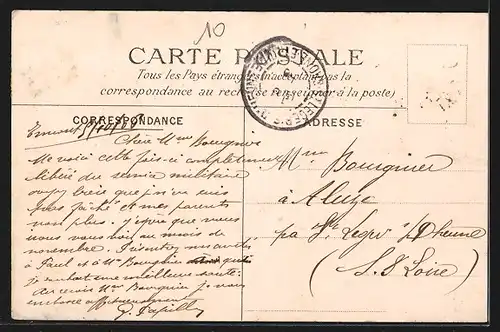 10
CARTE POSTALE
Tous les Pays étrangers n'acceptant pas la
correspondance au recto se renseigner à la poste)
CORRESPONDANCE
ADRESSE
Chère Mme Bourguier
Me voici cette fois-ci complètement
libéré du service militaire
croyez bien que j'en suis
pas fâché et mes parents
non plus. J'espère que nous
nous nous voir au mois de
novembre.
à Paul et à Mr Bourguier
je souhaite une meilleure santé.
Au revoir Mme Bourguier je vous
embrasse affectueusement
Mme Bourguier
à Aluze
par St Leger s/ Dheune
(S. & Loire)